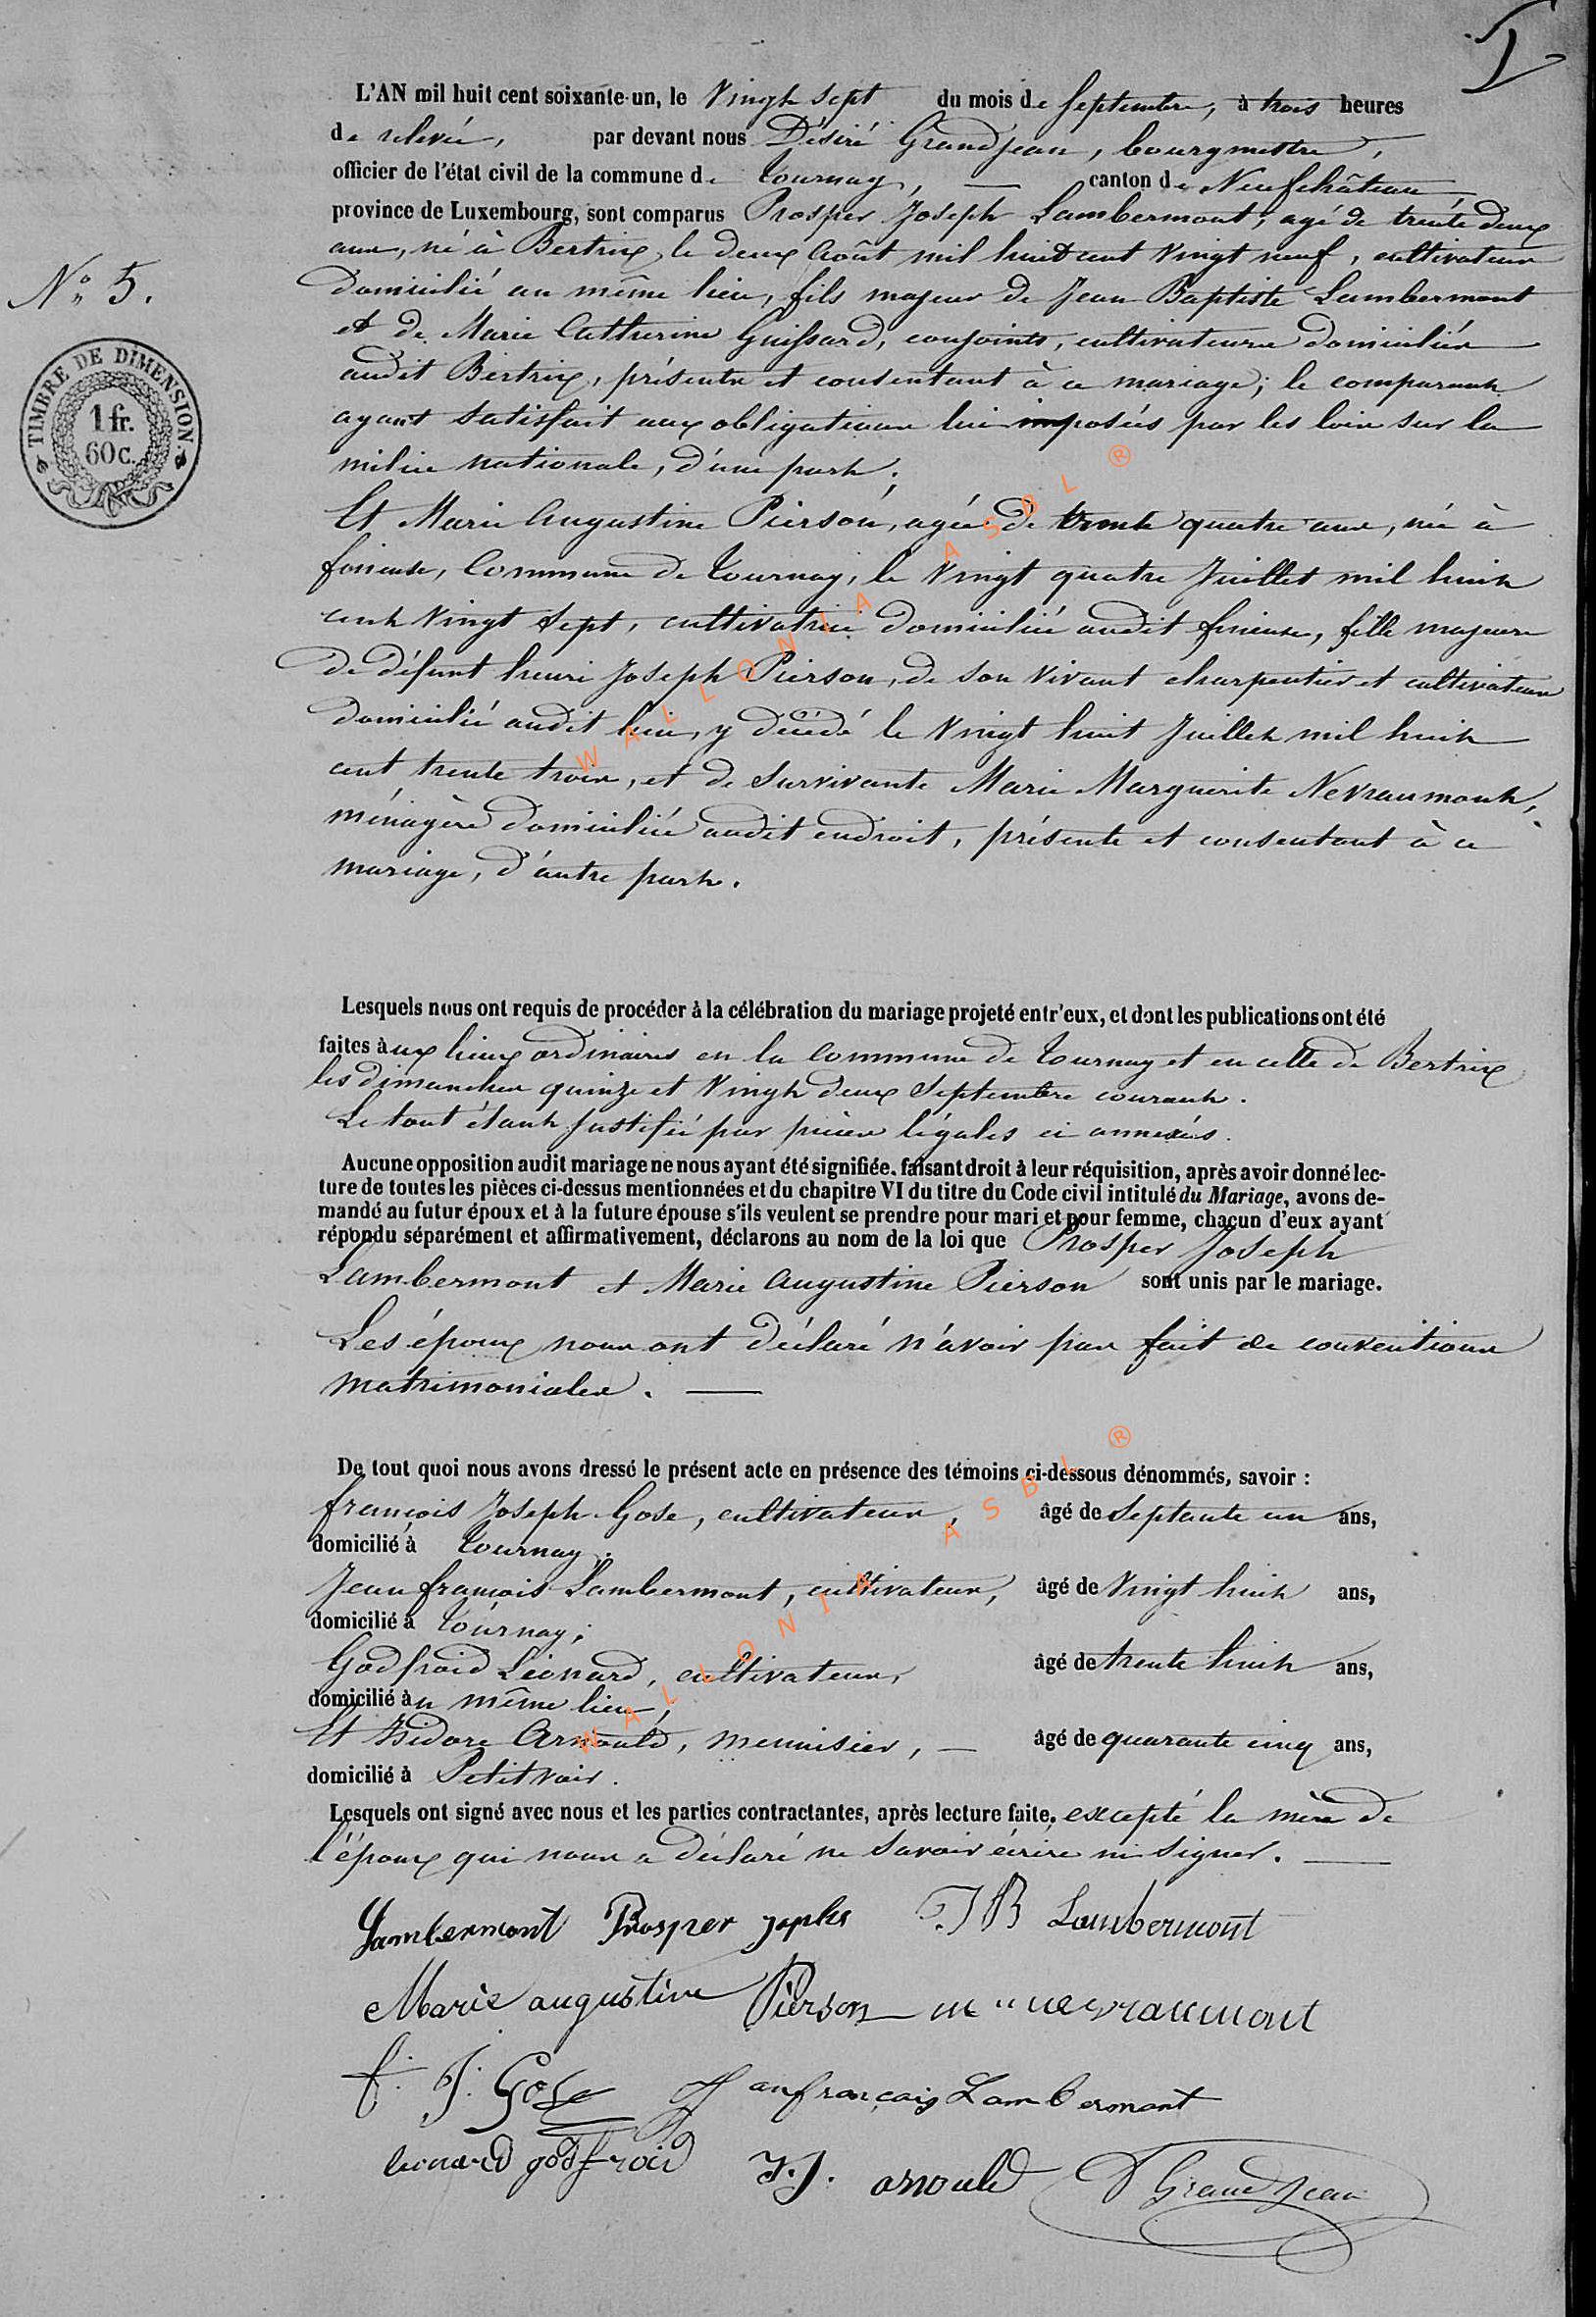 L'AN mil huit cent soixante-un, le Vingt sept du mois de Septembre, à trois heures
de relevée, par devant nous Désiré Grandjean, bourgmestre,
officier de l'état civil de la commune de Tournay, — canton de Neufchâteau
province de Luxembourg, sont comparus Prosper Joseph Lambermont, agé de trente deux
ans, né à Bertrix, le deux Août mil huit cent vingt neuf, cultivateur
domicilié au même lieu, fils majeur de Jean Baptiste Lambermont
et de Marie Catherine Guissard, conjoints, cultivateurs domiciliés
audit Bertrix, présents et consentant à ce mariage; le comparant
ayant satisfait aux obligations lui imposées par les lois sur la
milice nationale, d'une part;
Et Marie Augustine Pierson, agée de trente quatre ans, née à
, Commune de Tournay, le vingt quatre Juillet mil huit
cent vingt sept, cultivatrice domiciliée audit , fille majeure
de défunt henri Joseph Pierson, de son vivant charpentier et cultivateur
domicilié audit lieu, y décédé le vingt huit Juillet mil huit
cent trente trois, et de survivante Marie Marguerite Nevraumont,
ménagère domiciliée audit endroit, présente et consentant à ce
mariage, d'autre part.
N° 5.
TIMBRE DE DIMENSION
1 fr.
60 c.
Lesquels nous ont requis de procéder à la célébration du mariage projeté entr'eux, et dont les publications ont été
faites aux lieux ordinaires en la Commune de Tournay et en celle de Bertrix
les dimanches quinze et vingt deux Septembre courant.
Le tout étant justifié par pièces légales ci annexées.
Aucune opposition audit mariage ne nous ayant été signifiée, faisant droit à leur réquisition, après avoir donné lec-
ture de toutes les pièces ci-dessus mentionnées et du chapitre VI du titre du Code civil intitulé du Mariage, avons de-
mandé au futur époux et à la future épouse s'ils veulent se prendre pour mari et pour femme, chacun d'eux ayant
répondu séparément et affirmativement, déclarons au nom de la loi que Prosper Joseph
Lambermont et Marie Augustine Pierson sont unis par le mariage.
Les époux nous ont déclaré n'avoir pas fait de conventions
matrimoniales. —
De tout quoi nous avons dressé le présent acte en présence des témoins ci-dessous dénommés, savoir :
françois Joseph Gose, cultivateur, âgé de septante un ans,
domicilié à Tournay;
Jean françois Lambermont, cultivateur, âgé de vingt huit ans,
domicilié à Tournay;
Godfroid Léonard, cultivateur, âgé de trente huit ans,
domicilié au même lieu,
Et Isidore Arnould, menuisier, — âgé de quarante cinq ans,
domicilié à Petitvoir.
Lesquels ont signé avec nous et les parties contractantes, après lecture faite, excepté la mère de
l'époux qui nous a déclaré ne savoir écrire ni signer. —
Lambermont Prosper JB Lambermont
Marie augustine Pierson nevraumont
f. J. Gose Jean françois Lambermont
leonard godfroid I.J. arnould D Grandjean
WALLONIA ASBL ®
WALLONIA ASBL ®